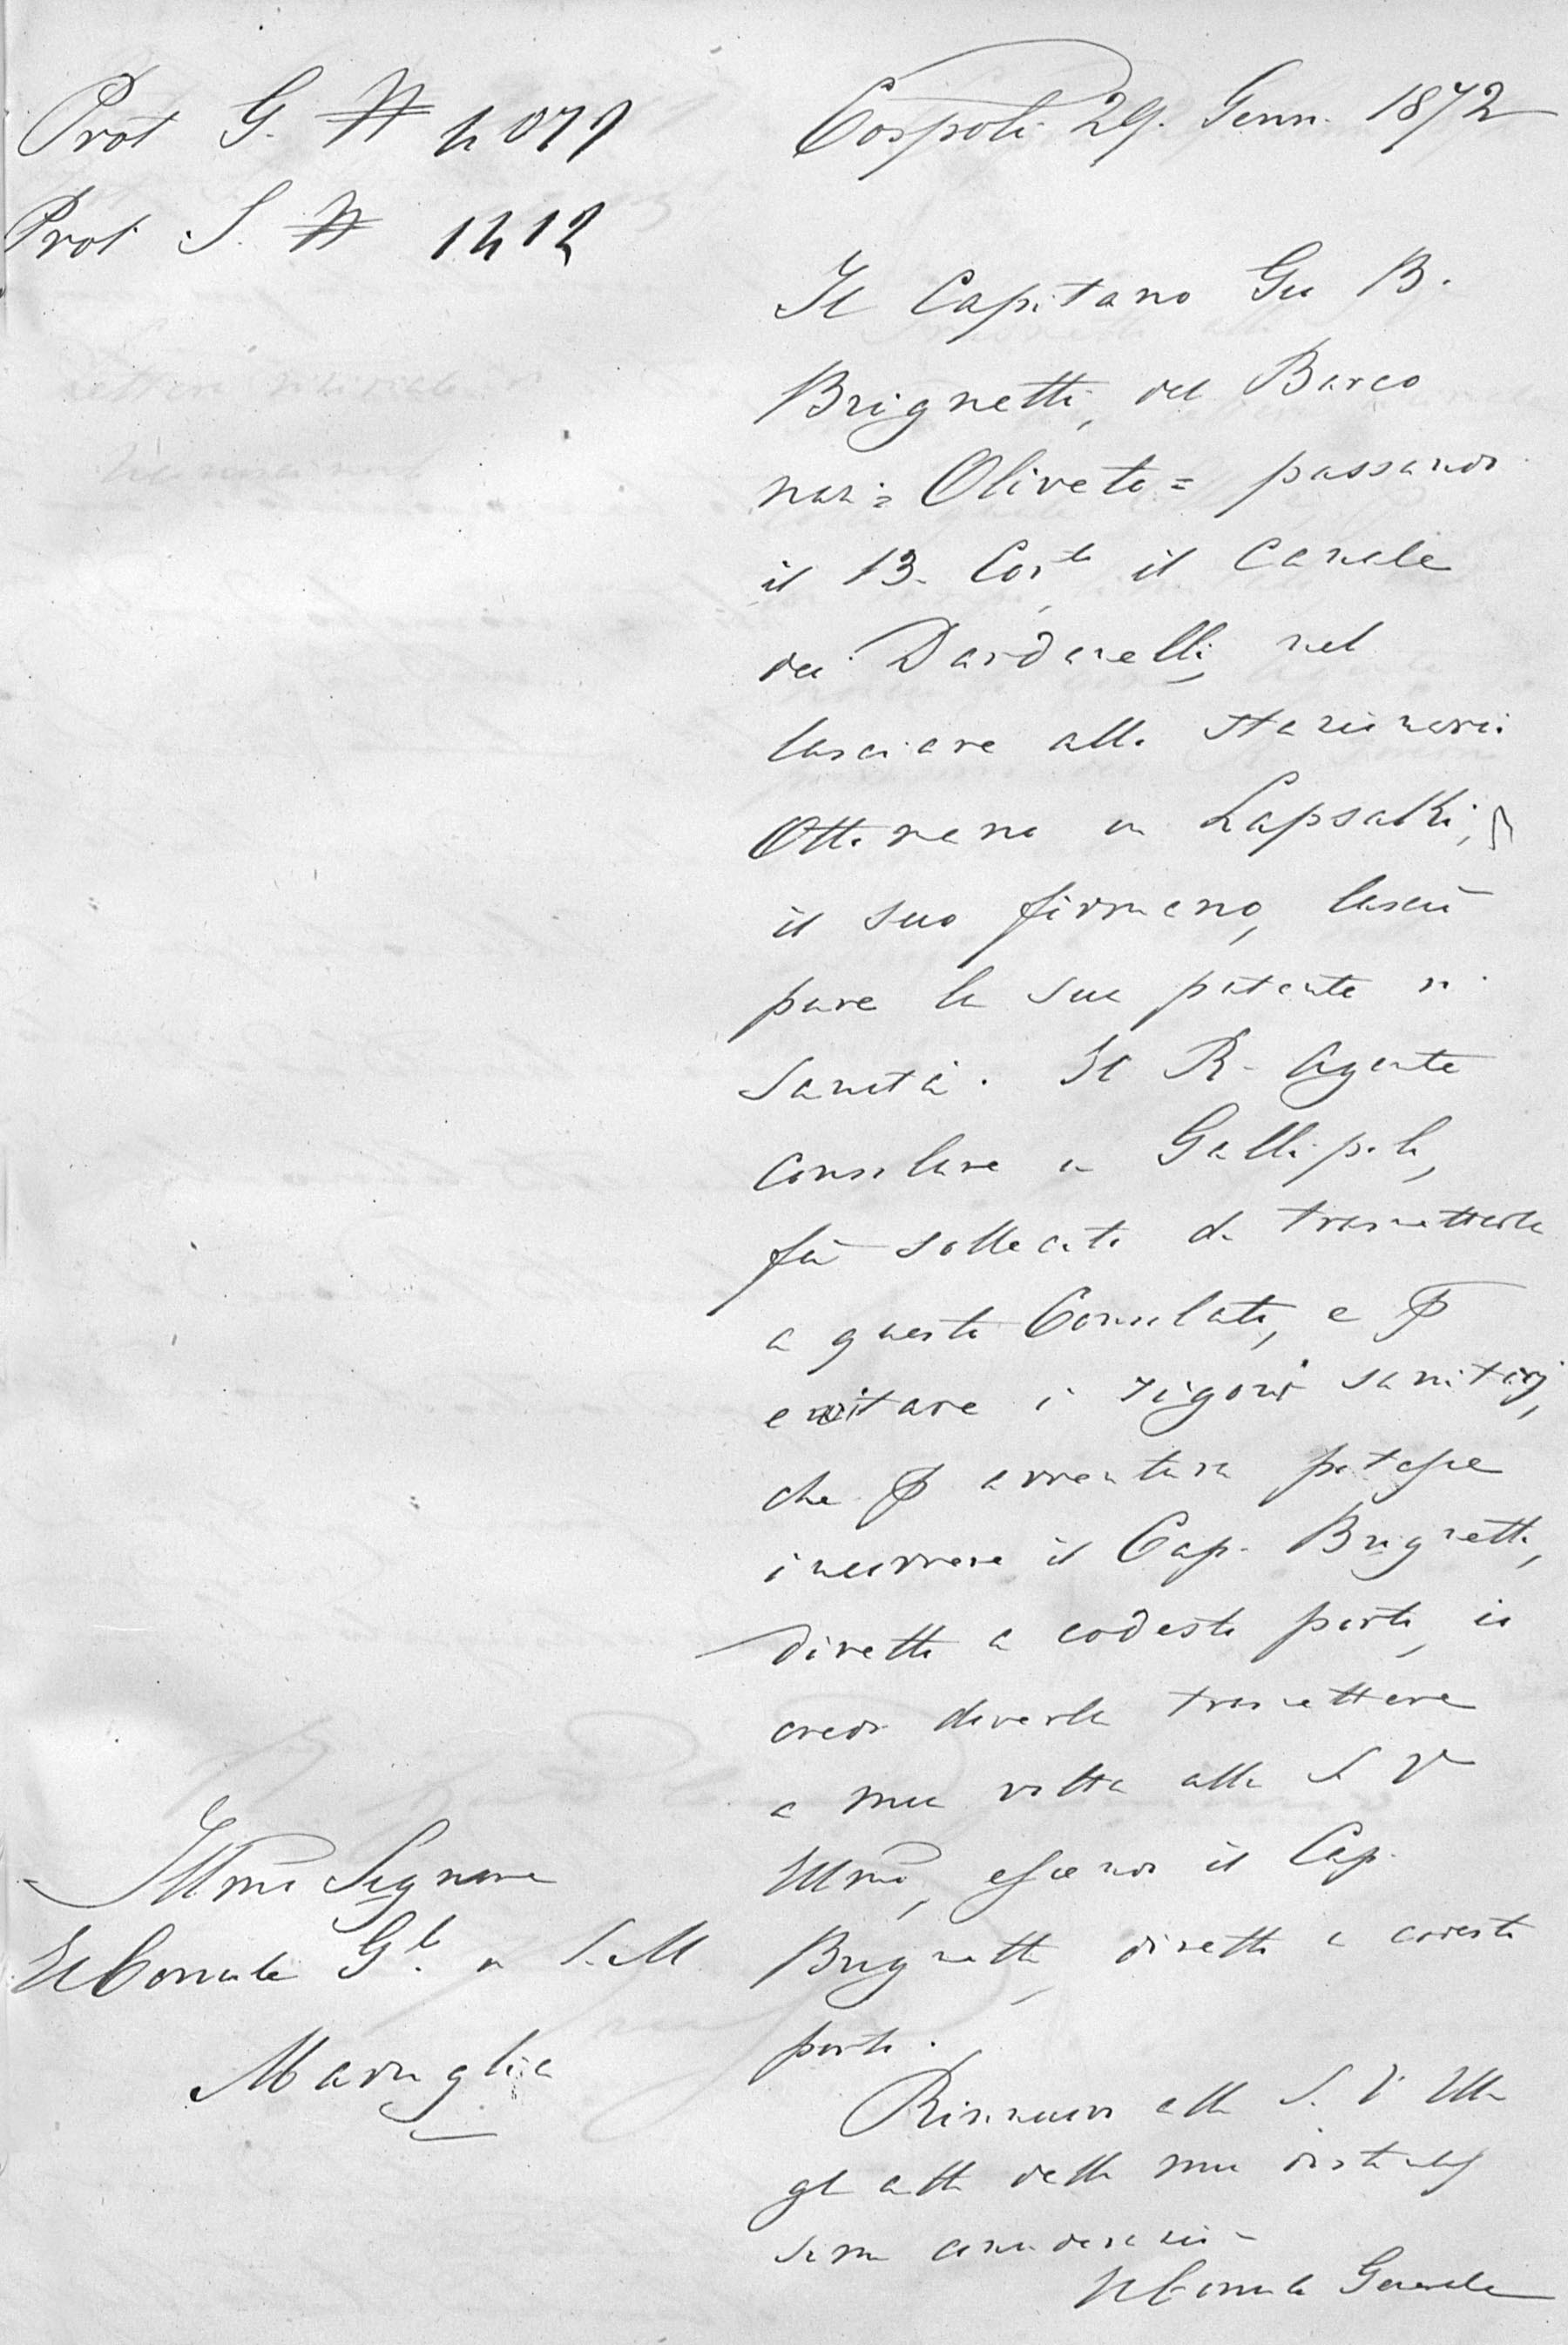 Prot G. N 4077
Prot S. N 1412
Cospoli 29. Genn. 1872
Il Capitano Gio B.
Brignetti, del Barco
naz: = Oliveto = passando
il 13. Cor.te il Canale
dei Dardanelli, nel
lasciare alla stazionaria
Ottomana in Lapsaki,
il suo firmano, lasciò
pure la sua patente di
Sanità. Il R. Agente
Consolare in Gallipoli,
fù sollecito di trasmetterla
a questo Consolato, e P
evitare i rigori sanitarj,
che P avventura potesse
incorrere il Cap. Brignetti,
diretto a codesto porto, io
credo doverla trasmettere
a mia volta alla S. V.
Illma, essendo il Cap.
Brignetti, diretto a codesto
porto.
Rinnovo alla S. V. Illa
gli atti della mia distintis
sima considerazione
Il Console Generale
Illmo Signore
Il Console G.le di S. M.
Marsiglia